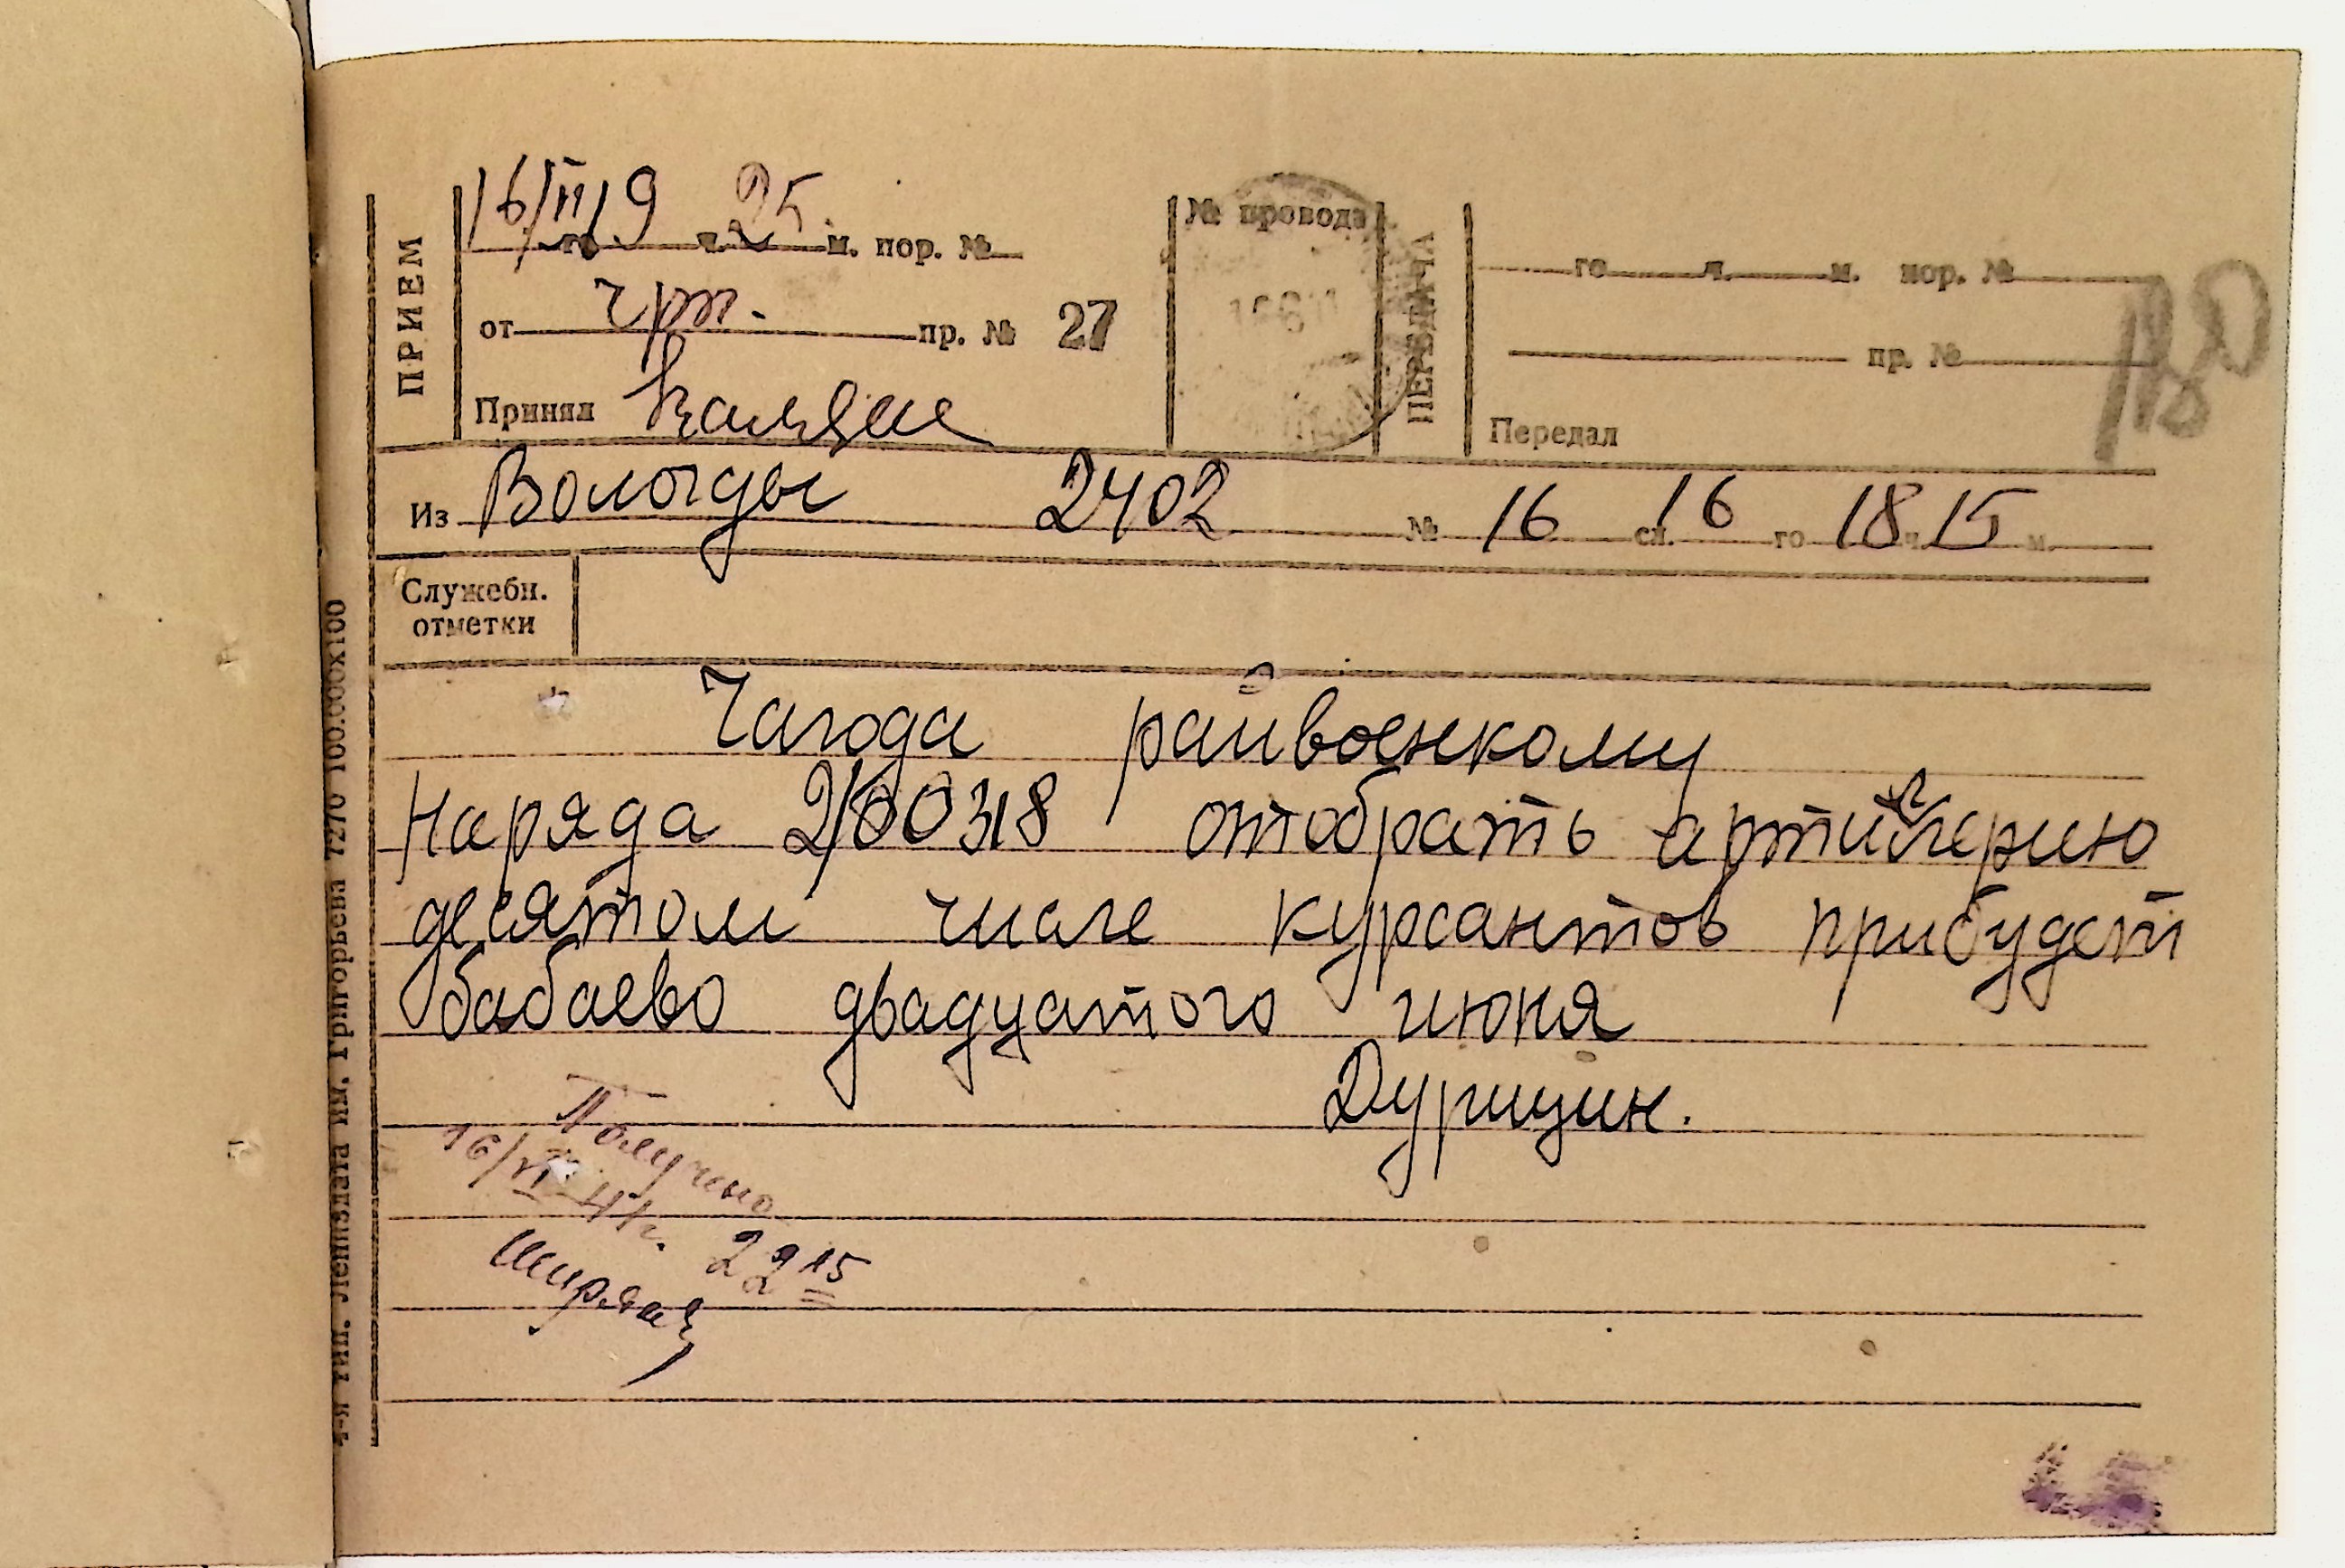 ПРИЕМ
16/VI 19 ч. 25 м. пор. №
от Чрп. пр. № 27
Принял
№ провода
ПЕРЕДАЧА
го ч. м. пор. №
пр. №
Передал
Из Вологды 2402 № 16 сл. 16 го 18 ч. 15 м.
Служебн.
отметки
Чагода райвоенкому
Наряда 2/00318 отобрать артиллерию
десятом числе курсантов прибудет
бабаево двадцатого июня
Дурицин.
Получено
16/VI 41г. 22 ч 15
Ширяев
4-я тип. Лениздата им. Григорьева 1270 100.000х100